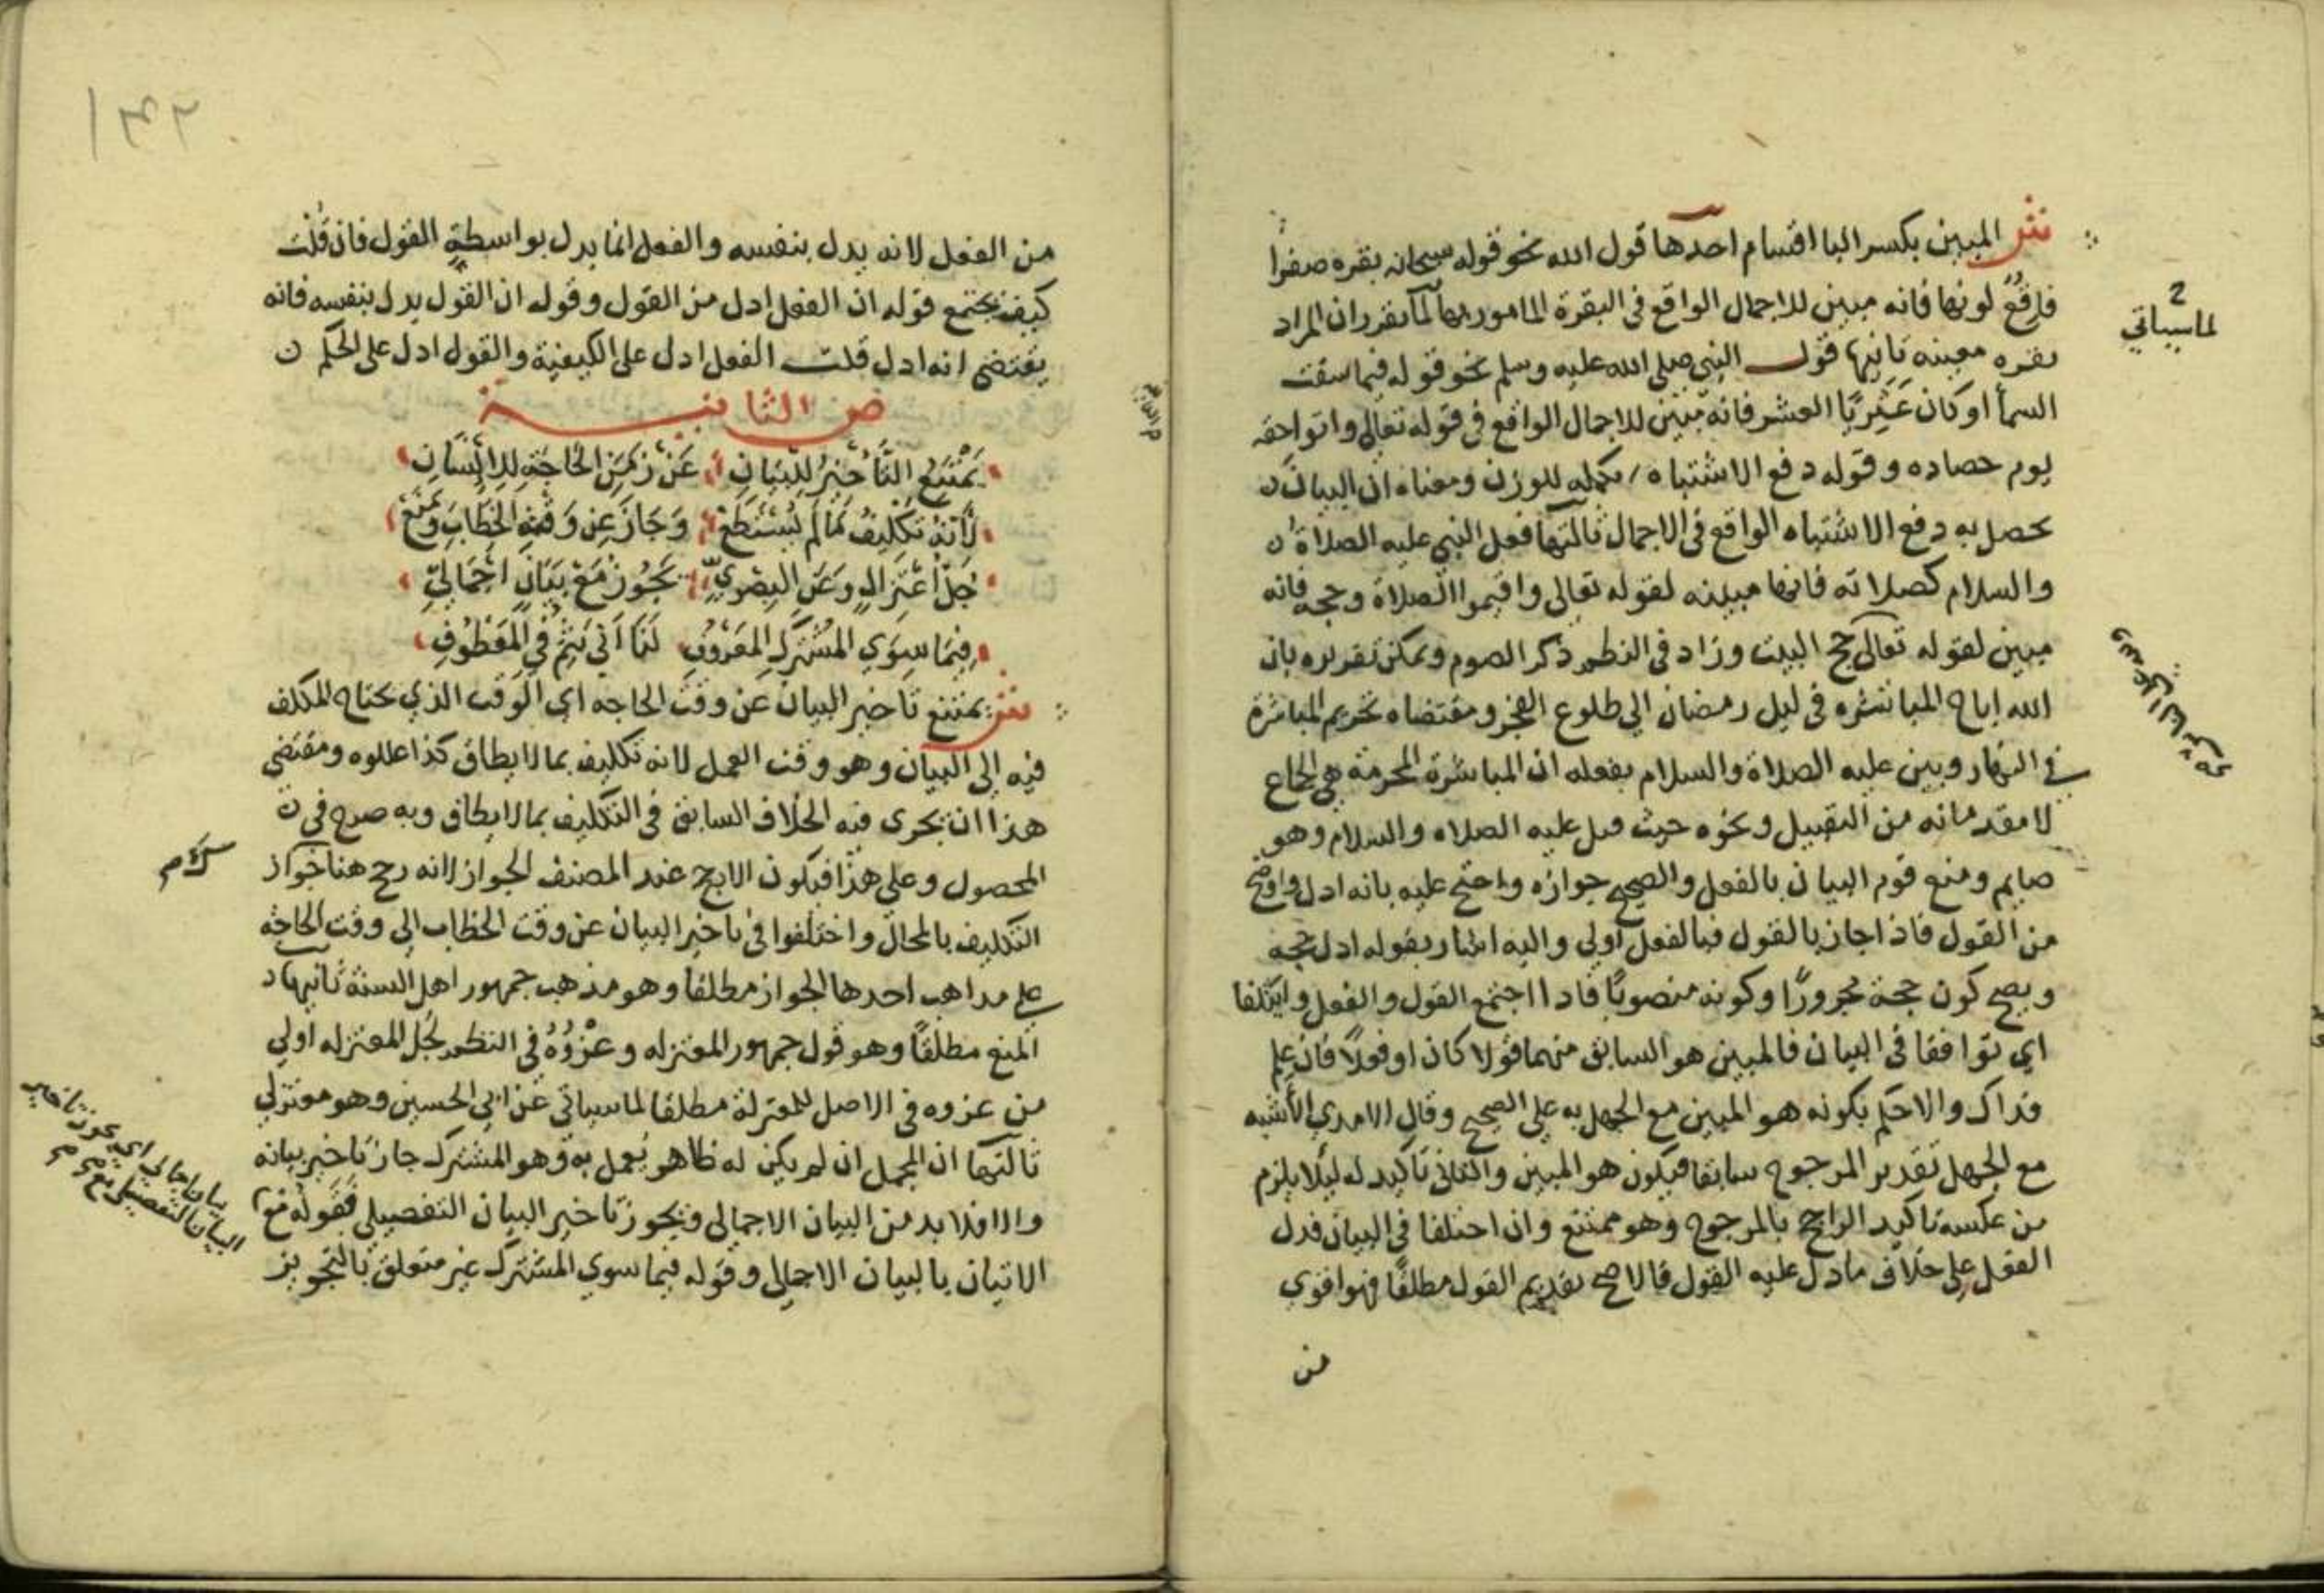 نثر المبين بكسر البا اقسام احدها قول الله نحو قوله سبحانه بقره صفرا
فاقع لونها فانه مبين للاجمال الواقع في البقرة المامور بها لما تقرر ان المراد
بقره معينه ثانيها قول النبي صلى الله عليه وسلم نحو قوله فيما سقت
السما او كان عثريا العشر فانه مبين للاجمال الواقع في قوله تعالى واتوا حقه
يوم حصاده وقوله دفع الاشتباه تكمله للوزن ومعناه ان البيان
يحصل به دفع الاشتباه الواقع في الاجمال ثالثها فعل النبي عليه الصلاة
والسلام كصلاته فانها مبينه لقوله تعالى واقيموا الصلاة وحجه فانه
مبين لقوله تعالى حج البيت وزاد في النظم ذكر الصوم ويمكن تقريره بان
الله اباح المباشره في ليل رمضان الي طلوع الفجر ومقتضاه تحريم المباشرة
في النهار وبين عليه الصلاة والسلام بفعله ان المباشرة المحرمة هي الجماع
لا مقدماته من التقبيل ونحوه حيث قبل عليه الصلاه والسلام وهو
صايم ومنع قوم البيان بالفعل والصحيح جوازه واحتج عليه بانه ادل واوضح
من القول فاذا جاز بالقول فبالفعل اولي واليه اشار بقوله ادل حجه
ويصح كون حجة مجرورا وكونه منصوبا فاذا اجتمع القول والفعل وايتلفا
اي توافقا في البيان فالمبين هو السابق منهما قولا كان او فعلا فان علم
فذاك والا حكم بكونه هو المبين مع الجهل به علي الصحيح وقال الامدي الأشبه
مع الجهل تقدير المرجوح سابقا فيكون هو المبين والثاني تاكيد له ليلا يلزم
من عكسه تاكيد الراجح بالمرجوح وهو ممتنع وان اختلفا في البيان فدل
الفعل علي خلاف ما دل عليه القول فالاصح تقديم القول مطلقا فهو اقوي
من
لما سياتي
١٣٢
من الفعل لانه يدل بنفسه والفعل انما يدل بواسطة القول فان قلت
كيف يجتمع قوله ان الفعل ادل من القول وقوله ان القول يدل بنفسه فانه
يقتضي انه ادل قلت الفعل ادل على الكيفية والقول ادل على الحكم
ص الثانية
يمتنع التأخير للبيان عن زمن الحاجة للإنسان
لأنه تكليف ما لم يستطع وجاز عن وقت الخطاب ومنع
جل اعتزال وعن البصري يجوز مع بيان اجمالي
فيما سوي المشترك المعروف لنا اتي بثم في المعطوف
نثر يمتنع تاخير البيان عن وقت الحاجه اي الوقت الذي يحتاج المكلف
فيه إلي البيان وهو وقت العمل لانه تكليف بما لا يطاق كذا عللوه ومقتضي
هذا ان يجري فيه الخلاف السابق في التكليف بما لا يطاق وبه صرح في
المحصول وعلي هذا فيكون الارجح عند المصنف الجواز لانه رجح هناك جواز
التكليف بالمحال واختلفوا في تاخير البيان عن وقت الخطاب الي وقت الحاجه
علي مذاهب احدها الجواز مطلقا وهو مذهب جمهور اهل السنة ثانيها
المنع مطلقا وهو قول جمهور المعتزله وعزوه في النظم لجل المعتزله اولي
من عزوه في الاصل للمعتزلة مطلقا لما سياتي عن ابي الحسين وهو معتزلي
ثالثها ان المجمل ان لم يكن له ظاهر يعمل به وهو المشترك جاز تاخير بيانه
والا فلا بد من البيان الاجمالي ويجوز تاخير البيان التفصيلي فقوله مع
الاتيان بالبيان الاجمالي وقوله فيما سوي المشترك غير متعلق بالتجويز
بيان اجمالي اي يجوز تاخير
البيان التفصيلي مع